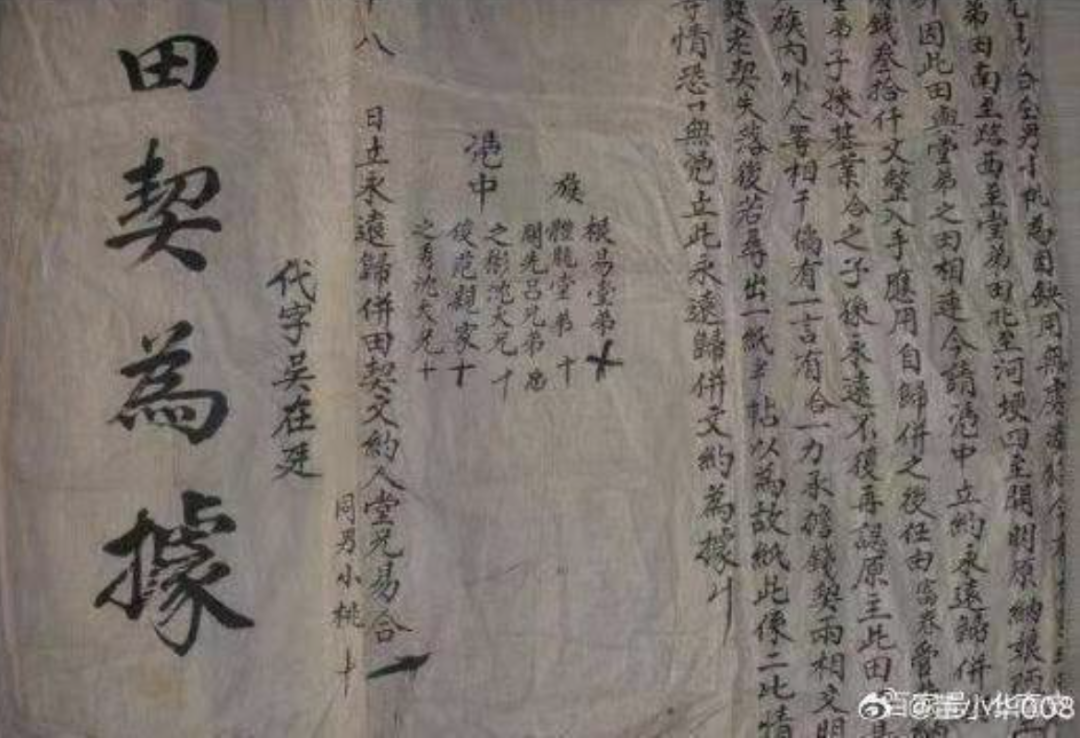 合仝男小桃為因缺用無處
弟田南至路西至堂弟田北至河埂四至開明原納糧
因此田與堂弟之田相連今請憑中立約永遠歸併
錢叁拾仟文整入手應用自歸併之後任由
堂弟子孫基業合之子孫永遠不復再認原主此田
族內外人等相干倘有一言有合一力承擔錢契兩相交明
契老契失落後若尋出一紙半帖以為故紙此係二比情
等情恐口無憑立此永遠歸併文約為據
族
根易堂弟十
體龍堂弟十
開先呂兄弟
憑中
之彬沈大兄十
俊范親家十
之秀沈大兄十
十八日立永遠歸併田契文約人堂兄易合
同男小桃十
代字吳在廷
田契為據